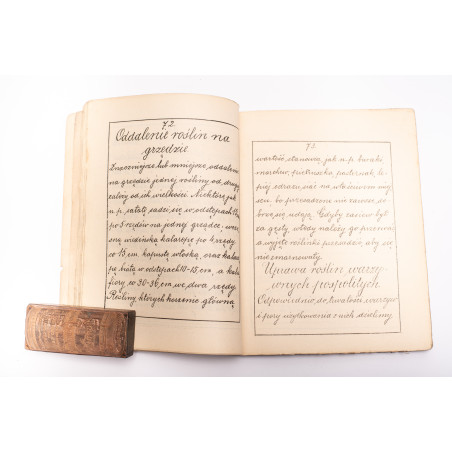 72
Oddalenie roślin na
grzędzie
Znaczniejsze lub mniejsze, oddalenie
na grzędzie jednej rośliny od drug.
zależy od ich wielkości. Niektóre jak
n.p. sałatę sadzi się w odstępach
po 5 rzędów na jednej grządce, wczes
ną wiedeńską kalarepę po rzędy
co 15 cm kapustę włoską, oraz kala
pę białą w odstępach 10-15 cm, a kala
fiory w 30-36 cm we dwa rzędy
Rośliny których korzenie główną
73.
wartość stanowią, jak n.p. buraki
marchew, pietruszka, pasternak, le
piej odrazu siać na właściwem miej
scu, bo przesadzane nie zawsze do
brze się udają. Gdyby zasiew był
za gęsty, wtedy należy go przerwać
a wyjęte roślinki przesadzić, aby się
nie zmarnowały.
Uprawa roślin warzy
wnych pospolitych.
Odpowiednio do trwałości warzyw
i pory użytkowania z nich dzielimy